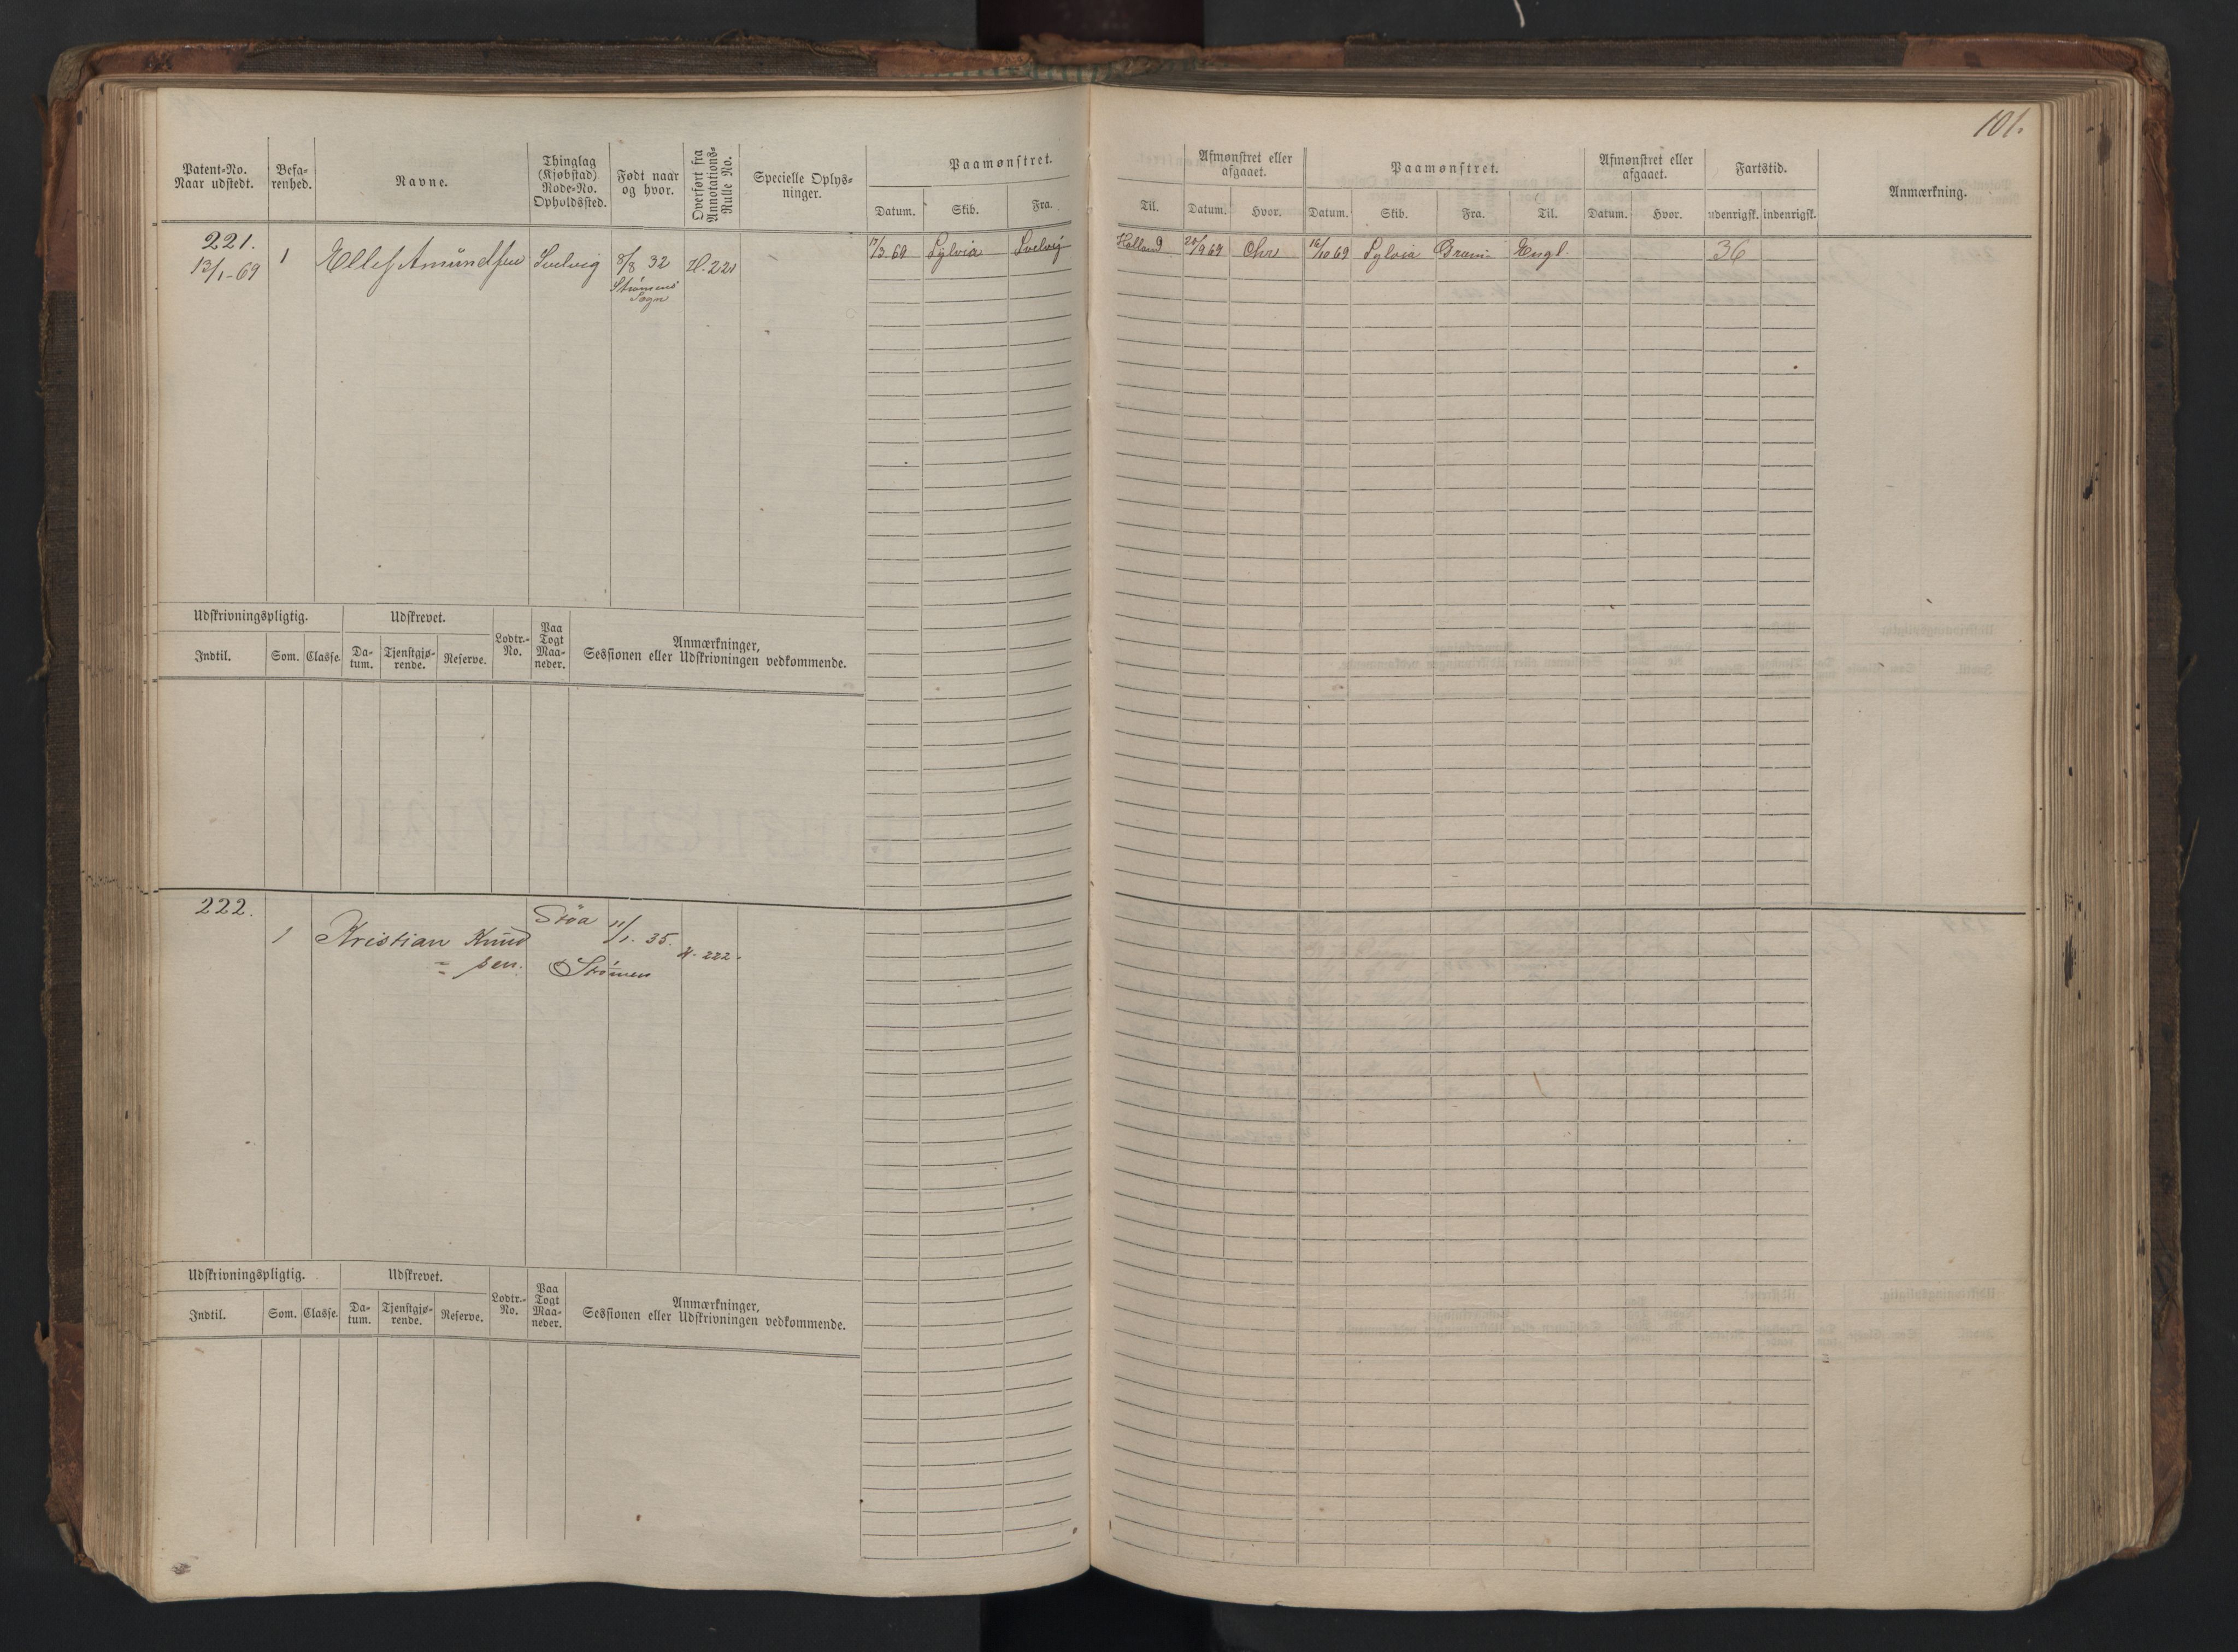 101.
Patent-No. Naar udstedt.
Befa-renhed.
Navne.
Thinglag (Kjøbstad) Rode-No. Opholdssted.
Født naar og hvor.
Overført fra Annotations-Rulle No.
Specielle Oplys-ninger.
Paamønstret.
Datum. Skib. Fra.
Til.
Afmønstret eller afgaaet.
Datum. Hvor.
Paamønstret.
Datum. Skib. Fra. Til.
Afmønstret eller afgaaet.
Datum. Hvor.
Fartstid.
udenrigsk. indenrigsk.
Anmærkning.
221. 
13/1-69 1 Ellef Amundsen Svelvig 8/8 32 H. 221 17/3 69 Sylvia Svelvig Holland 20/9 69 Chra 16/10 69 Sylvia Engl. 36
Strømens
Sogn
Udskrivningspligtig. Udskrevet. Lodtr.-No. Paa Togt Maa-neder. Anmærkninger, Sessionen eller Udskrivningen vedkommende.
Indtil. Som. Classe. Da-tum. Tjenstgjø-rende. Reserve.
222.
1 Kristian Knud Støa 11/1. 35. H. 222.
= sen. Strømen
Udskrivningspligtig. Udskrevet. Lodtr.-No. Paa Togt Maa-neder. Anmærkninger, Sessionen eller Udskrivningen vedkommende.
Indtil. Som. Classe. Da-tum. Tjenstgjø-rende. Reserve.